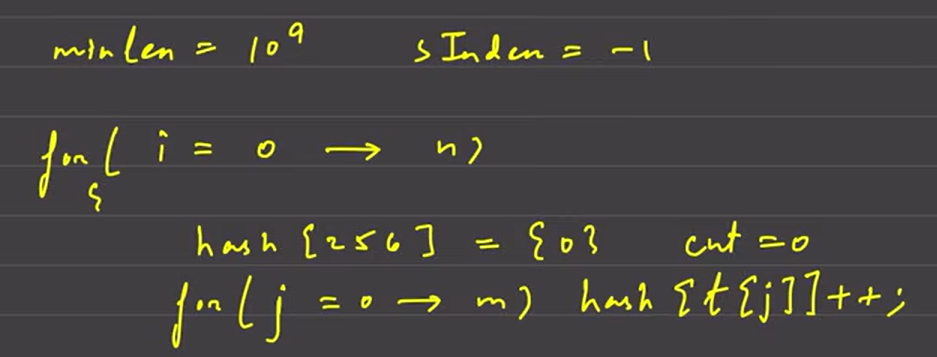 minLen = 10^9 sIndex = -1
for( i = 0 → n)
{
hash [256] = {0} cnt = 0
for( j = 0 → m) hash [t[j]]++;